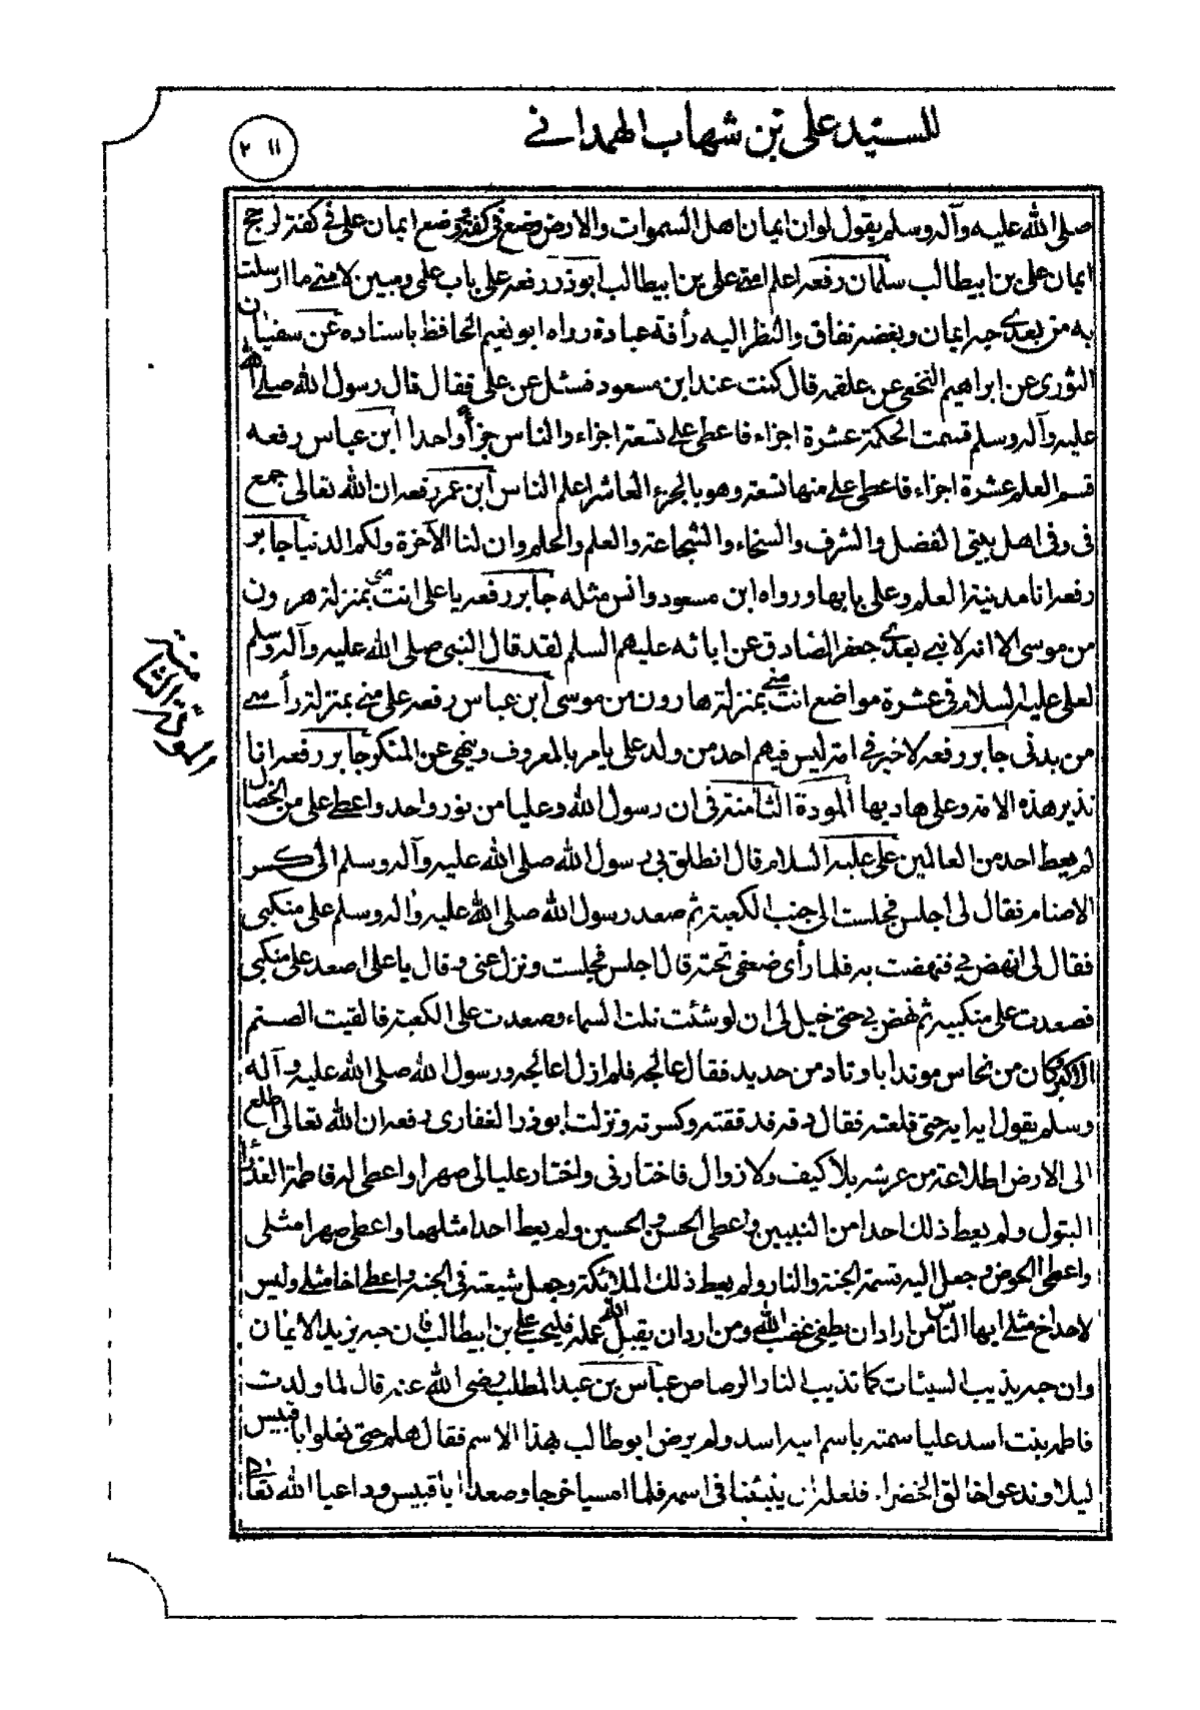 للسيد علي بن شهاب الهمداني
٢١١
صلى الله عليه وآله وسلم يقول لو ان ايمان اهل السموات والارض وضع في كفة ووضع ايمان علي في كفة لرجح
ايمان علي بن ابيطالب سلمان رفعه اعلم امتي علي بن ابيطالب ابوذر رفعه علي باب علمي ومبين لامتي ما ارسلت
به من بعدي حبه ايمان وبغضه نفاق والنظر اليه رأفة عبادة رواه ابو نعيم الحافظ باسناده عن سفيان
الثوري عن ابراهيم النخعي عن علقمه قال كنت عند ابن مسعود فسئل عن علي فقال قال رسول الله صلى الله
عليه وآله وسلم قسمت الحكمة عشرة اجزاء فاعطى علي تسعة اجزاء والناس جزأ واحدا ابن عباس رفعه
قسم العلم عشرة اجزاء فاعطى علي منها تسعة وهو بالجزء العاشر اعلم الناس ابن عمر رفعه ان الله تعالى جمع
في وفي اهل بيتي الفضل والشرف والسخاء والشجاعة والعلم والحلم وان لنا الآخرة ولكم الدنيا جابر
رفعه انا مدينة العلم وعلي بابها ورواه ابن مسعود وانس مثله جابر رفعه يا علي انت مني بمنزلة هرون
من موسى الا انه لا نبي بعدي جعفر الصادق عن ابائه عليهم السلم لقد قال النبي صلى الله عليه وآله وسلم
لعلي عليه السلام في عشرة مواضع انت مني بمنزلة هارون من موسى ابن عباس رفعه علي مني بمنزلة رأسي
من بدني جابر رفعه لا خير في امة ليس فيهم احد من ولد علي يامر بالمعروف وينهى عن المنكر جابر رفعه انا
نذير هذه الامة وعلي هاديها المودة الثامنة في ان رسول الله وعليا من نور واحد واعطى علي من الخصال
لم يعط احد من العالمين علي عليه السلام قال انطلق بي رسول الله صلى الله عليه وآله وسلم الى كسر
الاصنام فقال لي اجلس فجلست الى جنب الكعبة ثم صعد رسول الله صلى الله عليه وآله وسلم على منكبي
فقال لي انهض بي فنهضت به فلما رأى ضعفي تحته قال اجلس فجلست ونزل عني وقال يا علي اصعد على منكبي
فصعدت على منكبيه ثم نهض بي حتى خيل لي ان لو شئت نلت السماء وصعدت على الكعبة فالقيت الصنم
الاكبر وكان من نحاس موتدا باوتاد من حديد فقال عالجه فلم ازل اعالجه ورسول الله صلى الله عليه وآله
وسلم يقول ايه ايه حتى قلعته فقال دقه فدققته وكسرته ونزلت ابوذر الغفاري رفعه ان الله تعالى اطلع
الى الارض اطلاعة من عرشه بلا كيف ولا زوال فاختارني واختار عليا لي صهرا واعطى له فاطمة العذراء
البتول ولم يعط ذلك احدا من النبيين واعطى الحسن والحسين ولم يعط احدا مثلهما واعطى صهرا مثلي
واعطى الحوض وجعل اليه قسمة الجنة والنار ولم يعط ذلك الملائكة وجعل شيعته في الجنة واعطى اخا مثلي وليس
لاحد اخ مثلي ايها الناس من اراد ان يطفي غضب الله ومن اراد ان يقبل الله عمله فليحب علي بن ابيطالب فان حبه يزيد الايمان
وان حبه يذيب السيئات كما تذيب النار الرصاص عباس بن عبد المطلب رضي الله عنه قال لما ولدت
فاطمة بنت اسد عليا سمته باسم ابيه اسد ولم يرض ابو طالب بهذا الاسم فقال هلم حتى نعلوا باقبيس
ليلا وندعوا خالق الخضراء فلعله ان ينبئنا في اسمه فلما امسيا خرجا وصعدا اباقبيس ودعيا الله تعالى
المودة الثامنة